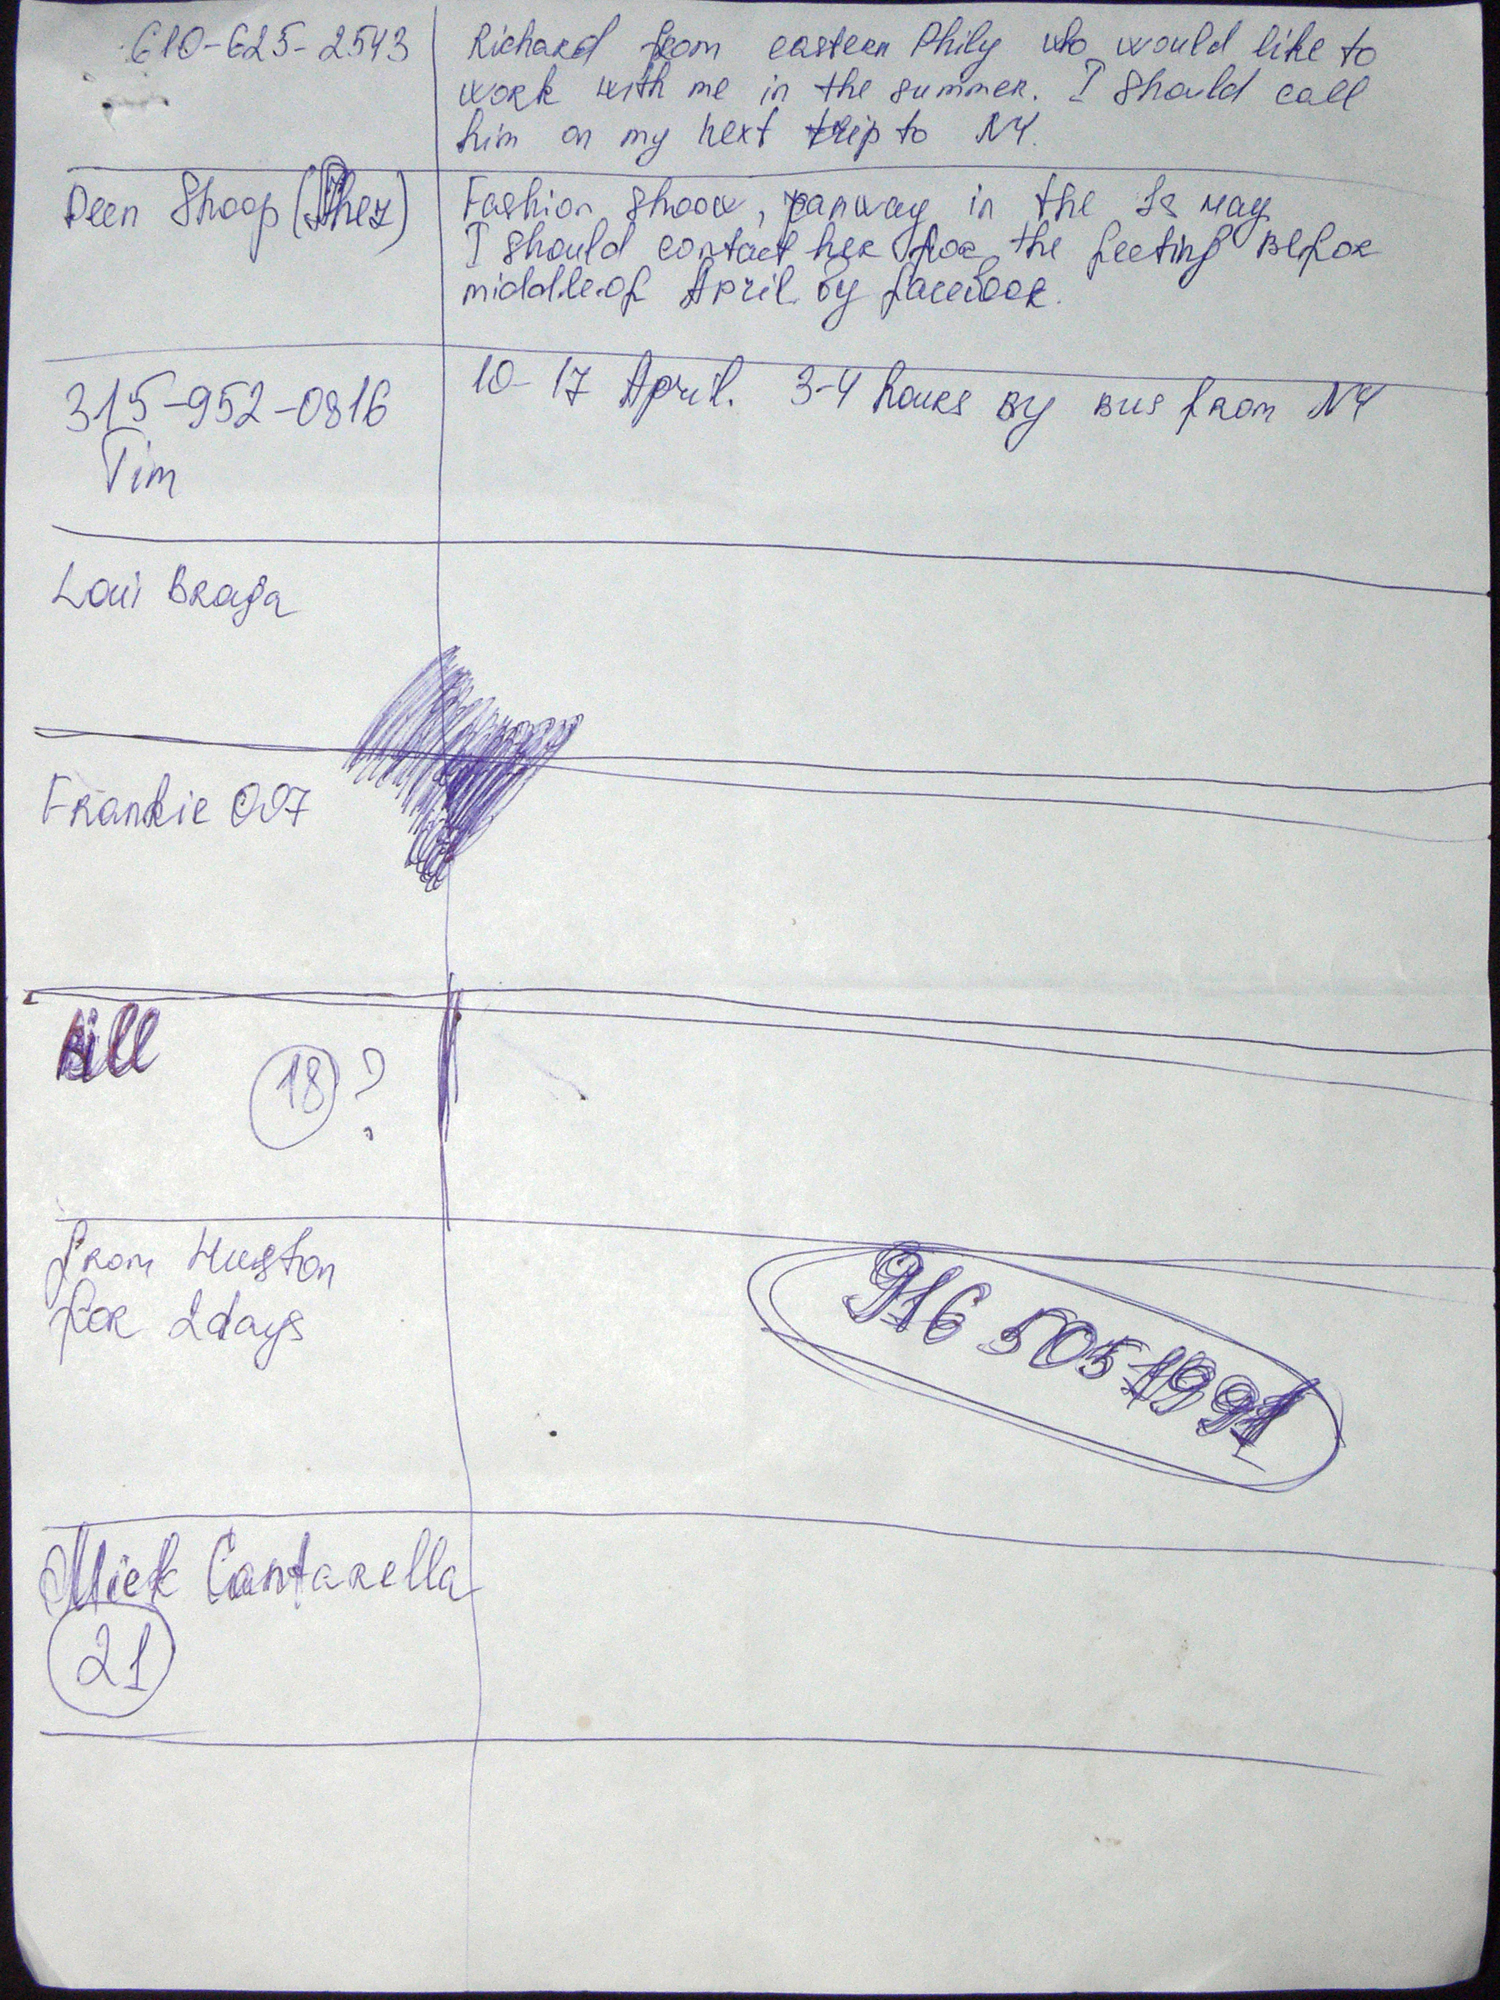 610-625-2543
Richard from eastern Phily who would like to
work with me in the summer. I should call
him on my next trip to NY.
Deen Shoop (Shez)
Fashion shoow, panway in the is may
I should contact her for the feeting befor
middle of April by facebook.
315-952-0816
Tim
10-17 April. 3-4 hours by bus from NY
Loui Braga
Frankie 007
Bill
18 ?
from Huston
for 2 days
916 505 1991
Mick Cantarella
21